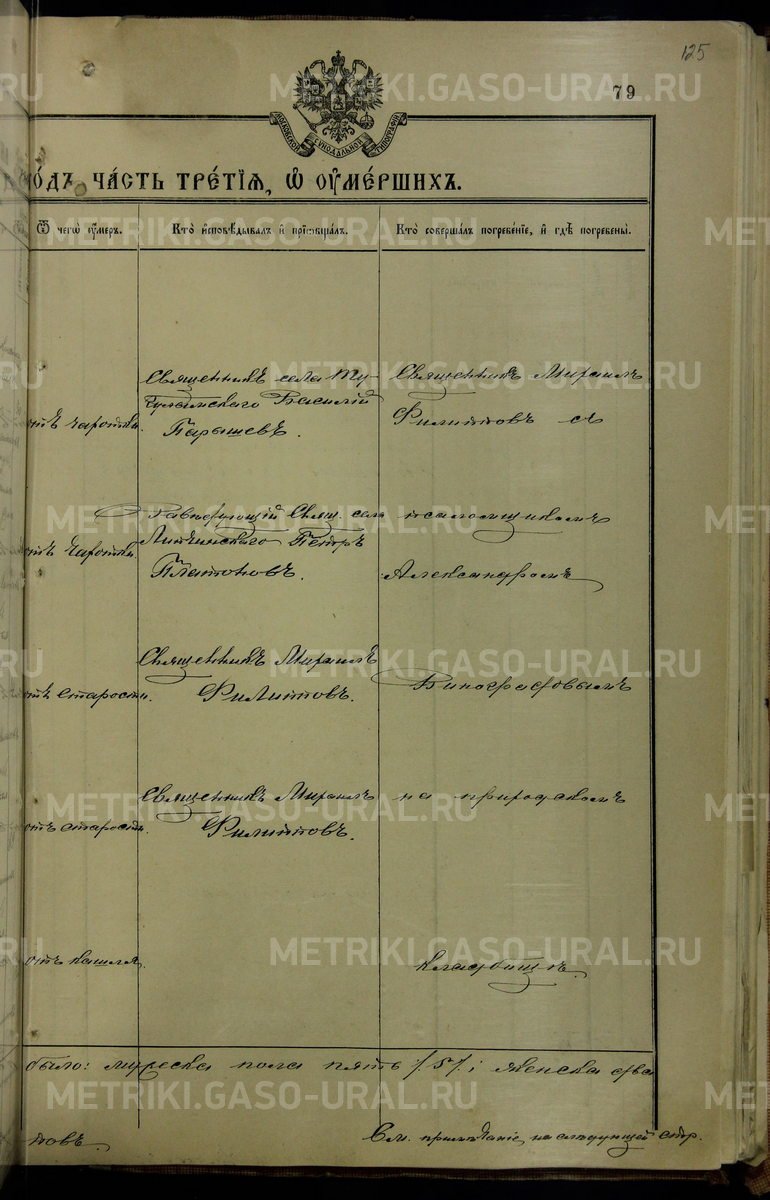 125
79
МОСКОВСКОЙ СѴНОДАЛЬНОЙ ТИПОГРАФІИ
ЧА́СТЬ ТРЕ́ТІѦ, Ѡ҆ ОУ҆МЕ́РШИХЪ.
Ѿ чегѡ̀ ᲂу҆́меръ.
Кто̀ и҆сповѣ́дывалъ и҆ прїѡбща́лъ.
Кто̀ соверша́лъ погребе́нїе, и҆ гдѣ̀ погребены̀.
отъ чахотки.
Священникъ села Ту-
гулымскаго Василій
Парышевъ.
Священникъ Михаилъ
Филипповъ съ
отъ чахотки.
Завѣдующій Свящ. села
Петръ
Платоновъ.
псаломщикомъ
Александромъ
отъ старости.
Священникъ Михаилъ
Филипповъ.
Виноградовымъ
отъ старости.
Священникъ Михаилъ
Филипповъ.
на приходскомъ
отъ кашля.
кладбищѣ.
было: мужеска пола пять /5/ и женска два
См. примѣчаніе на слѣдующей стр.
METRIKI.GASO-URAL.RU